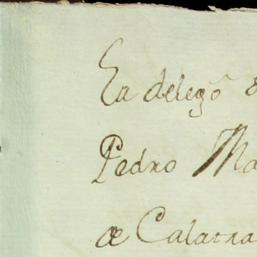 En delegõ
Pedro Ma
de Calatra